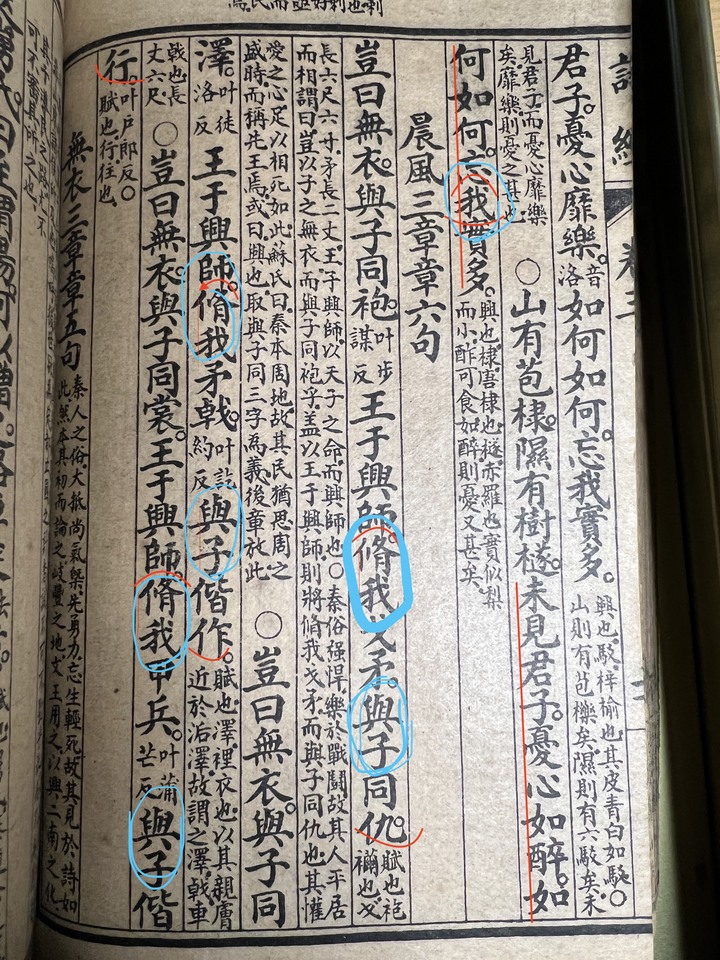 君子。憂心靡樂。音洛如何如何。忘我實多。興也駮梓榆也其皮青白如駮〇山則有苞櫟矣隰則有六駮矣未
見君子而憂心靡樂矣靡樂則憂之甚也〇山有苞棣。隰有樹檖。未見君子。憂心如醉。如
何如何。忘我實多。興也棣唐棣也檖赤羅也實似梨而小酢可食如醉則憂又甚矣
晨風三章章六句
豈曰無衣。與子同袍。叶步謀反王于興師。脩我戈矛。與子同仇。賦也袍襺也戈
長六尺六寸矛長二丈王于興師以天子之命而興師也〇秦俗强悍樂於戰鬭故其人平居
而相謂曰豈以子之無衣而與子同袍乎蓋以王于興師則將脩我戈矛而與子同仇也其懽
愛之心足以相死如此蘇氏曰秦本周地故其民猶思周之盛時而稱先王焉或曰興也取與子同三字為義後章放此〇豈曰無衣。與子同
澤。叶徒洛反王于興師。脩我矛戟。叶訖約反與子偕作。賦也澤裡衣也以其親膚近於垢澤故謂之澤戟車
戟也長丈六尺〇豈曰無衣。與子同裳。王于興師。脩我甲兵。叶蒲芒反與子偕
行。叶戶郎反〇賦也行往也
無衣三章章五句秦人之俗大抵尚氣槩先勇力忘生輕死故其見於詩如此然本其初而論之岐豐之地文王用之以興二南之化